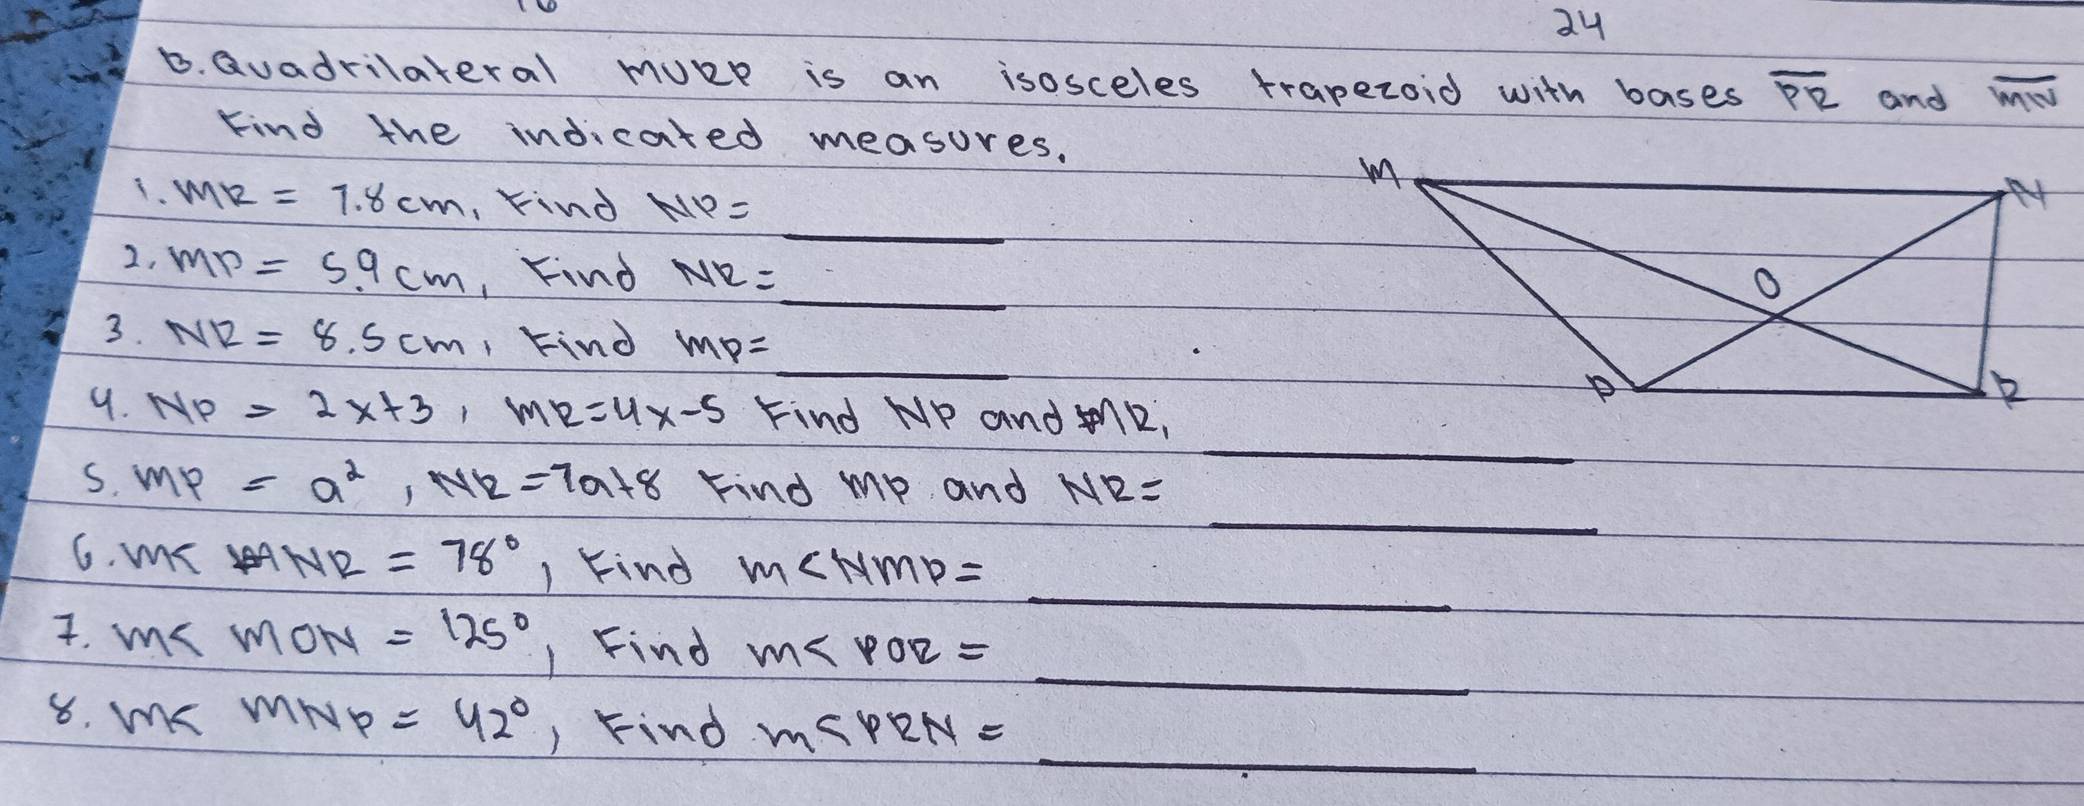 16
24
B. Quadrilateral MURP is an isosceles trapezoid with bases PR and MN
Find the indicated measures.
1. MR = 7.8 cm, Find NP =
2. MP = 5.9 cm, Find NR =
3. NR = 8.5 cm, Find MP =
4. NP = 2x+3, MR=4x-5 Find NP and MR,
5. MP = a², NR =7a+8 Find MP and NR =
6. m< MNR = 78°, Find m<NMP =
7. m< MON = 125°, Find m< POR =
8. m< MNP = 42°, Find m<PRN =
M
N
O
P
R